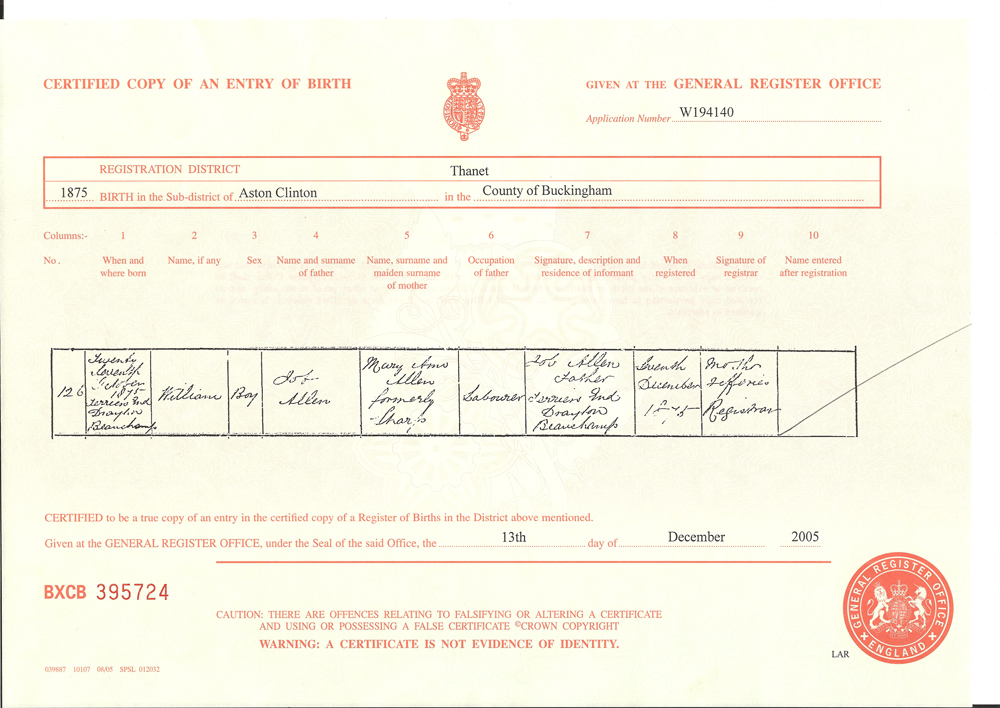 CERTIFIED COPY OF AN ENTRY OF BIRTH
GIVEN AT THE GENERAL REGISTER OFFICE
Application Number W194140
REGISTRATION DISTRICT Thanet
1875 BIRTH in the Sub-district of Aston Clinton in the County of Buckingham
Columns:- 1 2 3 4 5 6 7 8 9 10
No. When and where born
Name, if any
Sex
Name and surname of father
Name, surname and maiden surname of mother
Occupation of father
Signature, description and residence of informant
When registered
Signature of registrar
Name entered after registration
126
Twenty
Seventh
1875
Terriers End
Drayton
Beauchamp
William
Boy
Job
Allen
Mary Ann
Allen
formerly
Labourer
Job Allen
Father
Terriers End
Drayton
Beauchamp
Seventh
December
1875
Jefferies
Registrar
CERTIFIED to be a true copy of an entry in the certified copy of a Register of Births in the District above mentioned.
Given at the GENERAL REGISTER OFFICE, under the Seal of the said Office, the 13th day of December 2005
BXCB 395724
CAUTION: THERE ARE OFFENCES RELATING TO FALSIFYING OR ALTERING A CERTIFICATE
AND USING OR POSSESSING A FALSE CERTIFICATE ©CROWN COPYRIGHT
WARNING: A CERTIFICATE IS NOT EVIDENCE OF IDENTITY.
GENERAL REGISTER OFFICE
ENGLAND
LAR
039887 10107 08/05 SPSL 012032